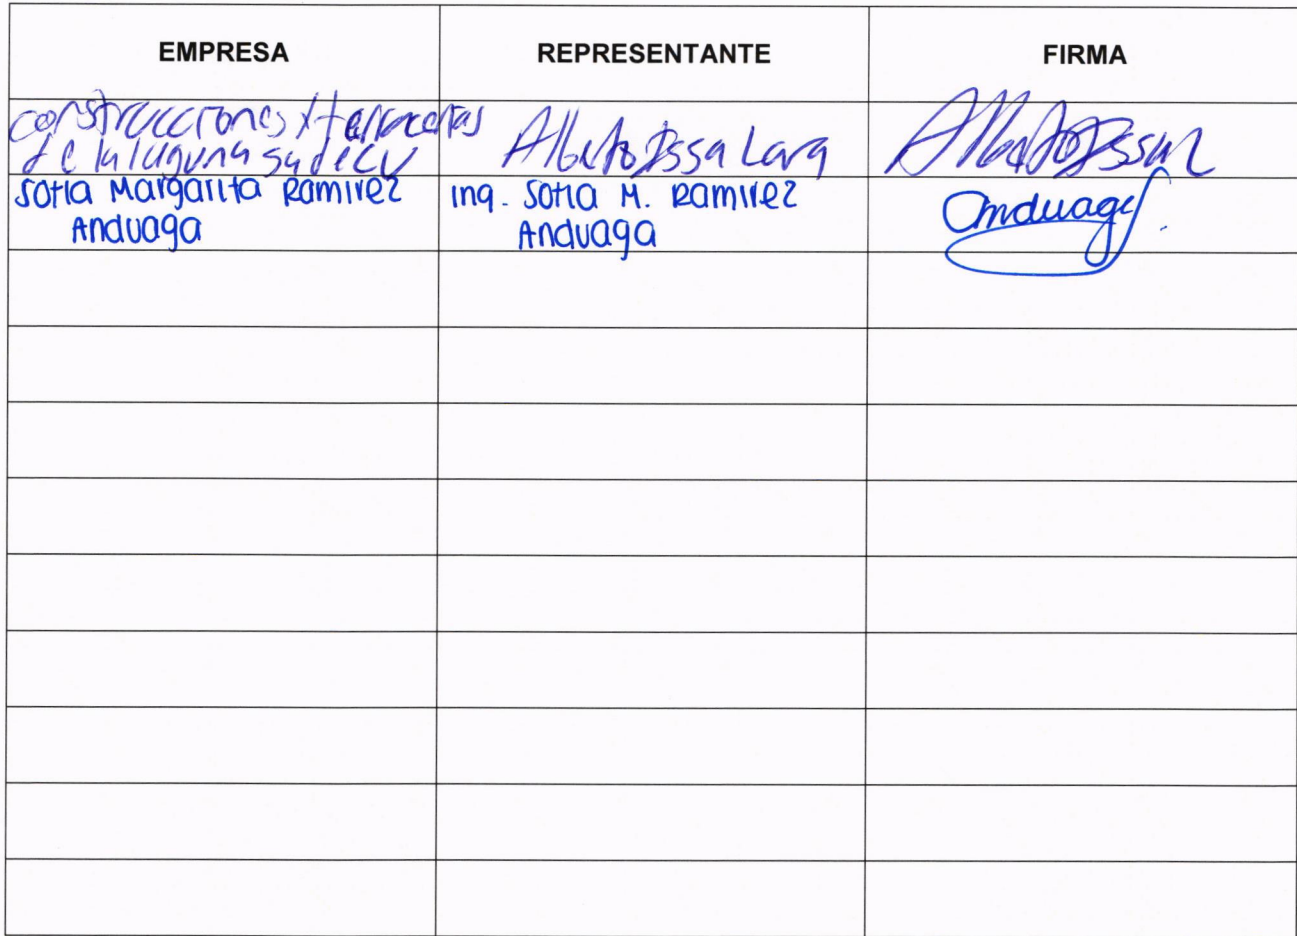 EMPRESA REPRESENTANTE FIRMA
construcciones y terracerias
de la laguna sa de cv
Alberto Issa Lara
Alberto Issa L
Sofia Margarita Ramirez
Anduaga
Ing. Sofia M. Ramirez
Anduaga
Anduaga